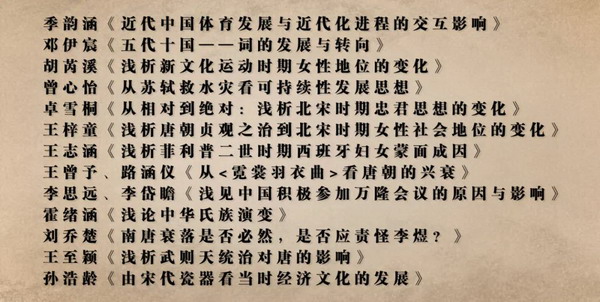 季韵涵《近代中国体育发展与近代化进程的交互影响》
邓伊宸《五代十国——词的发展与转向》
胡芮溪《浅析新文化运动时期女性地位的变化》
曾心怡《从苏轼救水灾看可持续性发展思想》
卓雪桐《从相对到绝对：浅析北宋时期忠君思想的变化》
王梓童《浅析唐朝贞观之治到北宋时期女性社会地位的变化》
王志涵《浅析菲利普二世时期西班牙妇女蒙面成因》
王曾予、路涵仪《从<霓裳羽衣曲>看唐朝的兴衰》
李思远、李岱瞻《浅见中国积极参加万隆会议的原因与影响》
霍绪涵《浅论中华氏族演变》
刘乔楚《南唐衰落是否必然，是否应责怪李煜？》
王至颖《浅析武则天统治对唐的影响》
孙浩龄《由宋代瓷器看当时经济文化的发展》